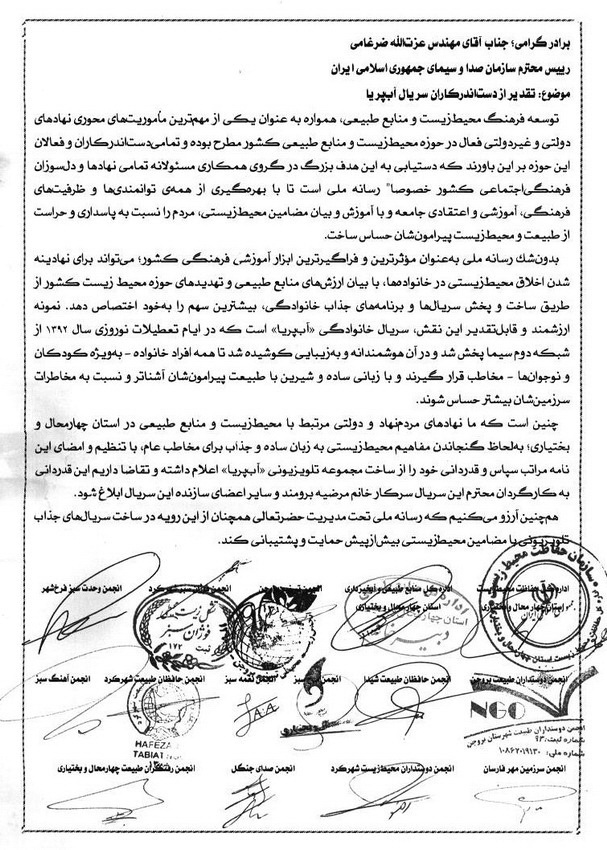 برادر گرامی؛ جناب آقای مهندس عزت‌الله ضرغامی
رییس محترم سازمان صدا و سیمای جمهوری اسلامی ایران
موضوع: تقدیر از دست‌اندرکاران سریال آب‌پریا
توسعه فرهنگ محیط‌زیست و منابع طبیعی، همواره به عنوان یکی از مهم‌ترین مأموریت‌های محوری نهادهای
دولتی و غیردولتی فعال در حوزه محیط‌زیست و منابع طبیعی کشور مطرح بوده و تمامی‌دست‌اندرکاران و فعالان
این حوزه بر این باورند که دستیابی به این هدف بزرگ در گروی همکاری مسئولانه تمامی نهادها و دلسوزان
فرهنگی‌اجتماعی کشور خصوصا" رسانه ملی است تا با بهره‌گیری از همه‌ی توانمندی‌ها و ظرفیت‌های
فرهنگی، آموزشی و اعتقادی جامعه و با آموزش و بیان مضامین محیط‌زیستی، مردم را نسبت به پاسداری و حراست
از طبیعت و محیط‌زیست پیرامون‌شان حساس ساخت.
بدون‌شك رسانه ملی به‌عنوان مؤثرترین و فراگیرترین ابزار آموزشی فرهنگی کشور؛ می‌تواند برای نهادینه
شدن اخلاق محیط‌زیستی در خانواده‌ها، با بیان ارزش‌های منابع طبیعی و تهدیدهای حوزه محیط زیست کشور از
طریق ساخت و پخش سریال‌ها و برنامه‌های جذاب خانوادگی، بیشترین سهم را به‌خود اختصاص دهد. نمونه
ارزشمند و قابل‌تقدیر این نقش، سریال خانوادگی «آب‌پریا» است که در ایام تعطیلات نوروزی سال ۱۳۹۲ از
شبکه دوم سیما پخش شد و در آن هوشمندانه و به‌زیبایی کوشیده شد تا همه افراد خانواده - به‌ویژه کودکان
و نوجوان‌ها - مخاطب قرار گیرند و با زبانی ساده و شیرین با طبیعت پیرامون‌شان آشناتر و نسبت به مخاطرات
سرزمین‌شان بیشتر حساس شوند.
چنین است که ما نهادهای مردم‌نهاد و دولتی مرتبط با محیط‌زیست و منابع طبیعی در استان چهارمحال و
بختیاری؛ به‌لحاظ گنجاندن مفاهیم محیط‌زیستی به زبان ساده و جذاب برای مخاطب عام، با تنظیم و امضای این
نامه مراتب سپاس و قدردانی خود را از ساخت مجموعه تلویزیونی «آب‌پریا» اعلام داشته و تقاضا داریم این قدردانی
به کارگردان محترم این سریال سرکار خانم مرضیه برومند و سایر اعضای سازنده این سریال ابلاغ شود.
هم‌چنین آرزو می‌کنیم که رسانه ملی تحت مدیریت حضرتعالی همچنان از این رویه در ساخت سریال‌های جذاب
تلویزیونی با مضامین محیط‌زیستی بیش‌ازپیش حمایت و پشتیبانی کند.
اداره کل حفاظت محیط‌زیست اداره کل منابع طبیعی و آبخیزداری انجمن وحدت سبز فرخ‌شهر
استان چهارمحال و بختیاری استان چهارمحال و بختیاری
انجمن دوستداران طبیعت بروجن انجمن حافظان طبیعت شیدا انجمن نغمه سبز انجمن حافظان طبیعت شهرکرد انجمن آهنگ سبز
NGO
انجمن دوستداران طبیعت شهرستان بروجن
HAFEZA
TABIAT
انجمن سرزمین مهر فارسان انجمن دوستداران محیط‌زیست شهرکرد انجمن صدای جنگل انجمن رفتگران طبیعت چهارمحال و بختیاری